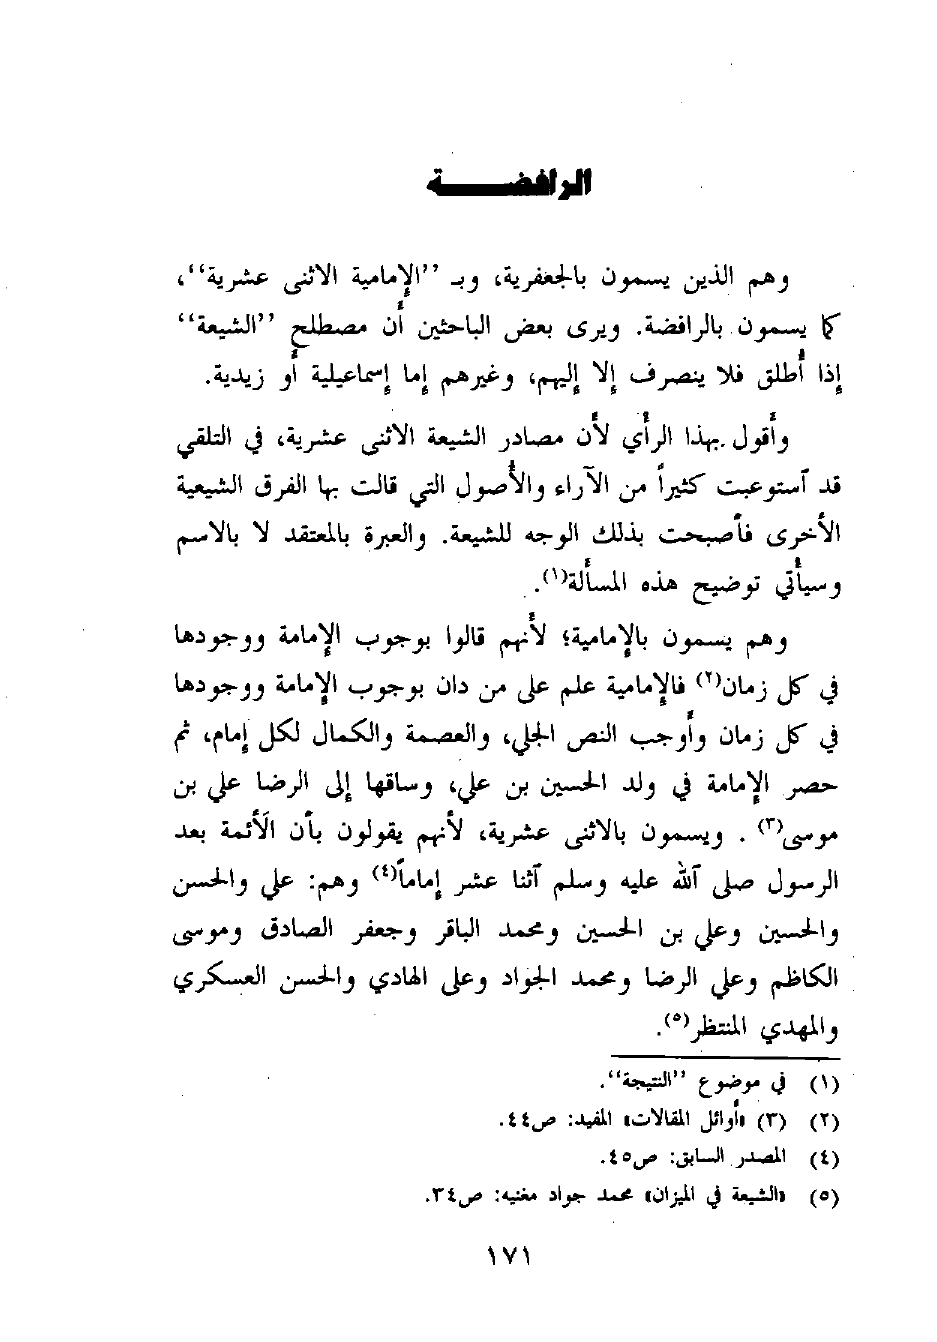 الرافضة
وهم الذين يسمون بالجعفرية، وبـ ''الإمامية الاثنى عشرية''،
كما يسمون بالرافضة. ويرى بعض الباحثين أن مصطلح ''الشيعة''
إذا أطلق فلا ينصرف إلا إليهم، وغيرهم إما إسماعيلية أو زيدية.
وأقول بهذا الرأي لأن مصادر الشيعة الاثنى عشرية، في التلقي
قد آستوعبت كثيراً من الآراء والأصول التي قالت بها الفرق الشيعية
الأخرى فأصبحت بذلك الوجه للشيعة. والعبرة بالمعتقد لا بالاسم
وسيأتي توضيح هذه المسألة(١).
وهم يسمون بالإمامية؛ لأنهم قالوا بوجوب الإمامة ووجودها
في كل زمان(٢) فالإمامية علم على من دان بوجوب الإمامة ووجودها
في كل زمان وأوجب النص الجلي، والعصمة والكمال لكل إمام، ثم
حصر الإمامة في ولد الحسين بن علي، وساقها إلى الرضا علي بن
موسى(٣) . ويسمون بالاثنى عشرية، لأنهم يقولون بأن الَأئمة بعد
الرسول صلى آلله عليه وسلم آثنا عشر إماماً(٤) وهم: علي والحسن
والحسين وعلي بن الحسين ومحمد الباقر وجعفر الصادق وموسى
الكاظم وعلي الرضا ومحمد الجواد وعلى الهادي والحسن العسكري
والمهدي المنتظر(٥).
(١) في موضوع ''النتيجة''.
(٢) (٣) «أوائل المقالات» المفيد: ص٤٤.
(٤) المصدر السابق: ص٤٥.
(٥) «الشيعة في الميزان» محمد جواد مغنيه: ص٣٤.
١٧١